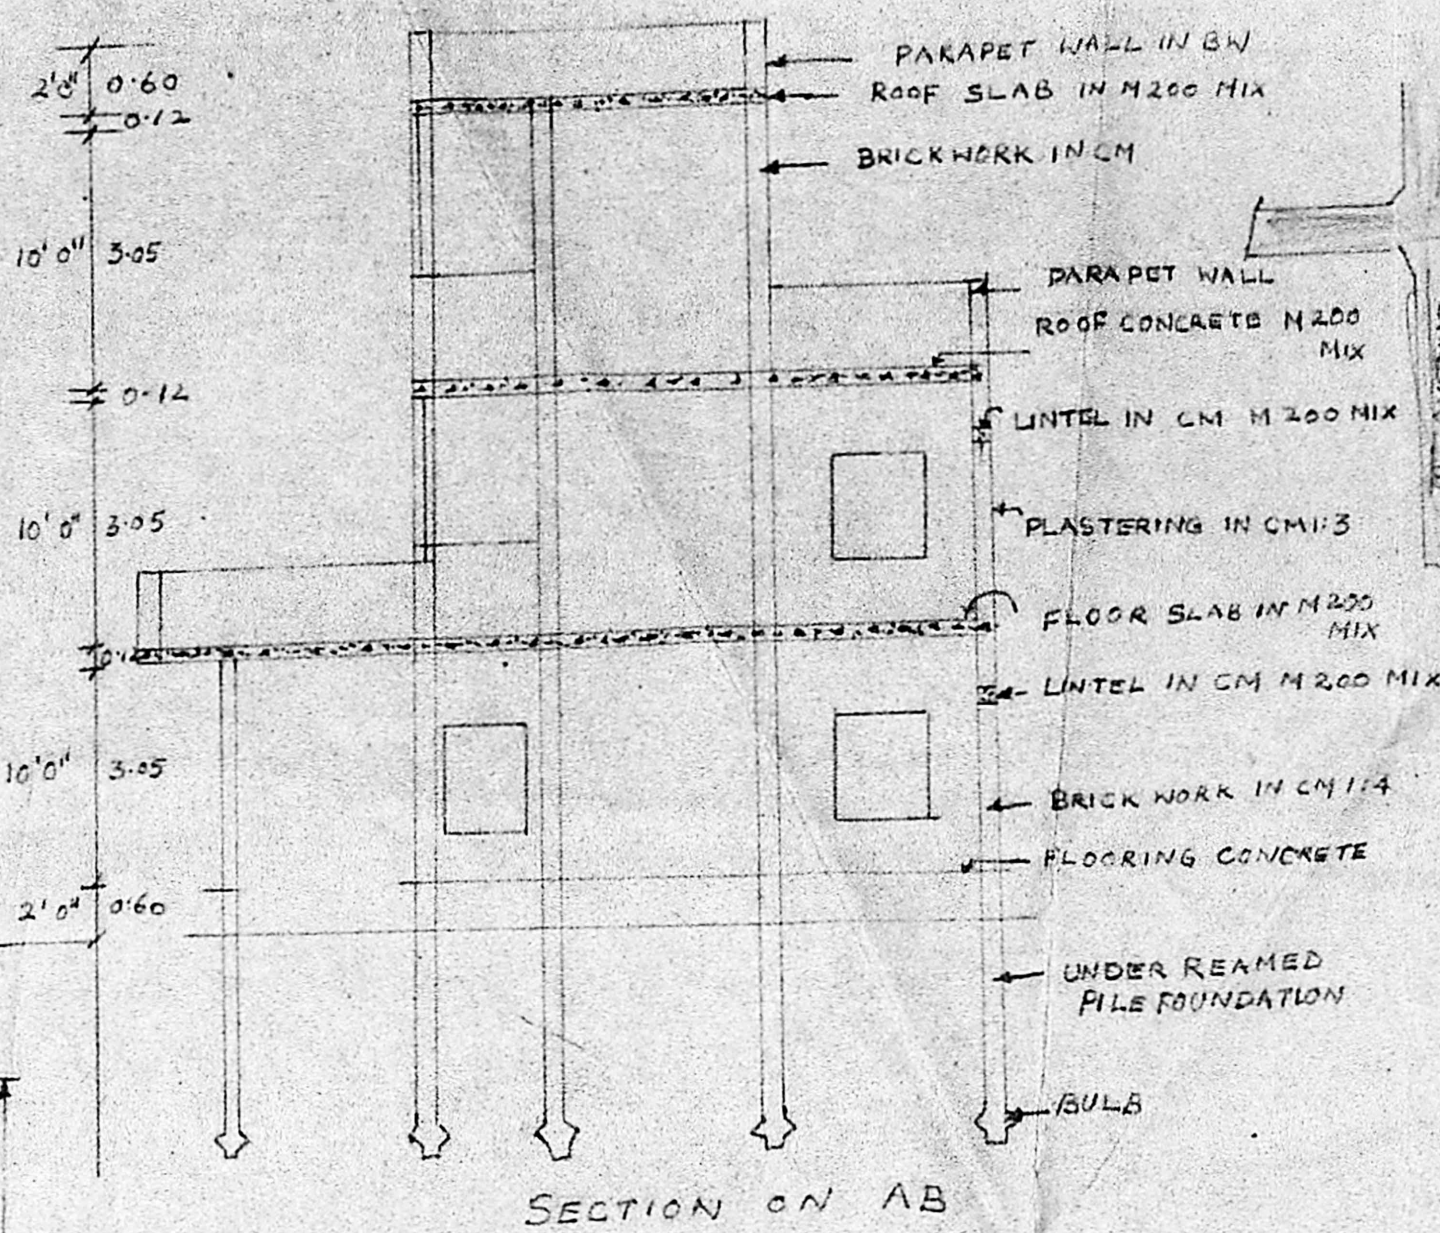 2'0" 0.60
0.12
10'0" 3.05
0.12
10'0" 3.05
10'0" 3.05
2'0" 0.60
PARAPET WALL IN BW
ROOF SLAB IN M200 MIX
BRICKWORK IN CM
PARAPET WALL
ROOF CONCRETE M200
MIX
LINTEL IN CM M200 MIX
PLASTERING IN CM1:3
FLOOR SLAB IN M200
MIX
LINTEL IN CM M200 MIX
BRICK WORK IN CM 1:4
FLOORING CONCRETE
UNDER REAMED
PILE FOUNDATION
BULB
SECTION ON AB